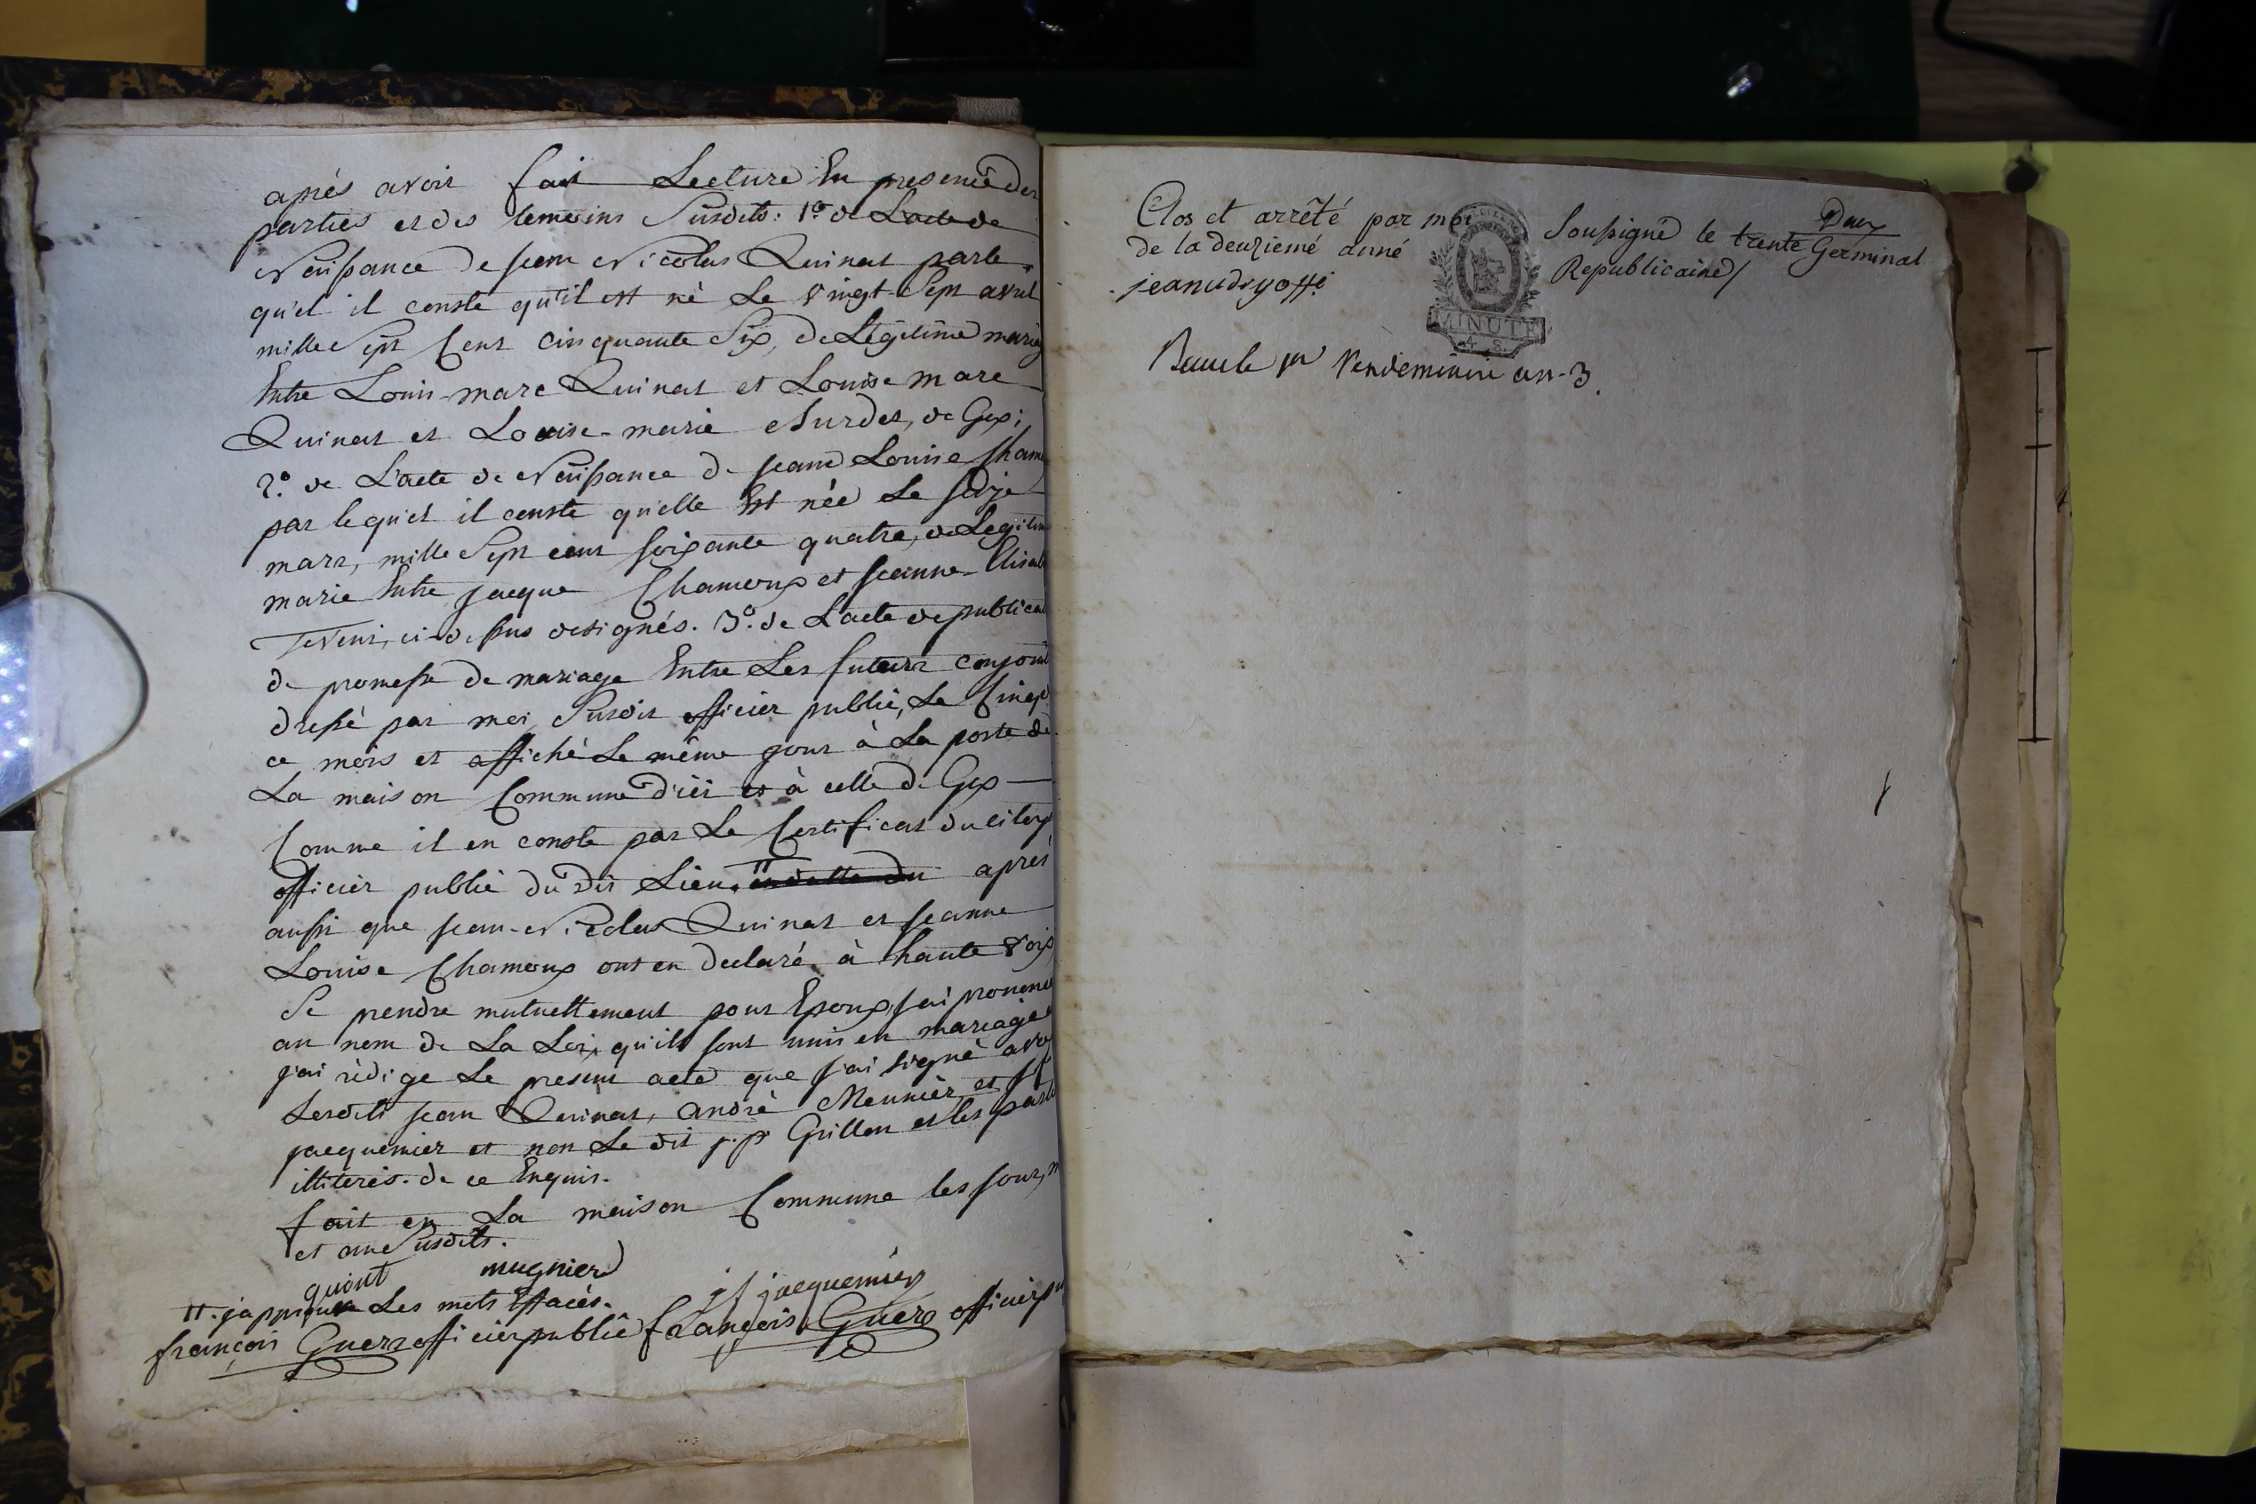 après avoir fait Lecture En presence des
parties et des temoins Susdits: 1.° de L'acte de
Naissance de jean Nicolas Quinat par le
qu'el il conste qu'il est né Le vingt-Sept avril
mille Sept Cent Cinquante Six, de Légitime mariag
Entre Louis-marc Quinat et Louise marc
Quinat et Louise-marie de Gex;
2.° de L'acte de Naissance de jeanne Louise Cham
par lequ'el il conste qu'elle Est née Le seize
mars, mille Sept cent soixante quatre, de Legitim
marie Entre jacque Chamoux et jeanne-Elisab
ci-dessus designés. 3.° de L'acte de publicat
de promesse de mariage Entre Les futeurs conjoint
dressé par moi Susdit officier public, Le Cinq d
ce mois et affiché Le même jour à La porte de
La maison Commune d'ici et à celle de Gex
Comme il en conste par Le Certificat du citoy
officier public du dit Lieu. après
aussi que jean-Nicolas Quinat et jeanne
Louise Chamoux ont en declaré à haute voix
Se prendre mutuellement pour Epoux, j'ai prononcé
au nom de La Loi, qu'ils sont unis en mariage
j'ai rédigé Le present acte que j'ai signé avec
Lesdits jean Quinat, andré Meunier, et j f
jacquemier et non Le dit j. p Grillon et les parti
illiterés. de ce Enquis.
fait en La maison Commune les jour, m
et ane Susdits.
quinat mugnier j f jacquemier
11. j'approuve Les mots Effacés.
françois Guerr officier public françois Guerr officier pu
Clos et arrêté par moi Soussigné le trente Germinal
Deux
de la deuzieme anné Republicaine/
MINUTE
4. S.
vendemiaire an-3.